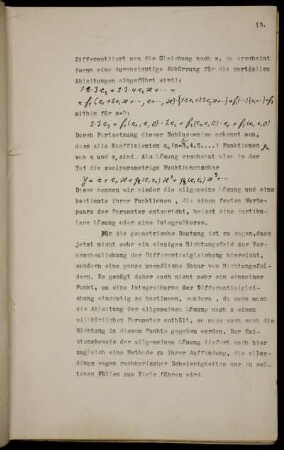 13.
Differentiert man die Gleichung nach x, so erscheint
(wenn eine durchsichtige Abkürzung für die partiellen
Ableitungen eingeführt wird):
mithin für x=0:
Durch Fortsetzung dieser Schlussweise erkennt man,
dass alle Koeffizienten (n=3,4,5,...) Funktionen
von c und c₁ sind. Als Lösung erscheint also in der
Tat die zweiparametrige Funktionenschar
Diese nennen wir wieder die allgemeine Lösung und eine
bestimmte ihrer Funktionen, die einem festen Werte-
paare der Parameter entspricht, heisst eine partiku-
läre Lösung oder eine Integralkurve.
Für die geometrische Deutung ist zu sagen, dass
jetzt nicht mehr ein einziges Richtungsfeld zur Ver-
anschaulichung der Differentialgleichung hinreicht,
sondern eine ganze unendliche Schar von Richtungsfel-
dern. Es genügt daher auch nicht mehr ein einzelner
Punkt, um eine Integralkurve der Differentialglei-
chung eindeutig zu bestimmen, sondern, da auch noch
die Ableitung der allgemeinen Lösung nach x einen
willkürlichen Parameter enthält, so muss auch noch die
Richtung in diesem Punkte gegeben werden. Der Exi-
stenzbeweis der allgemeinen Lösung liefert auch hier
zugleich eine Methode zu ihrer Auffindung, die aller-
dings wegen rechnerischer Schwierigkeiten nur in sel-
tenen Fällen zum Ziele führen wird.